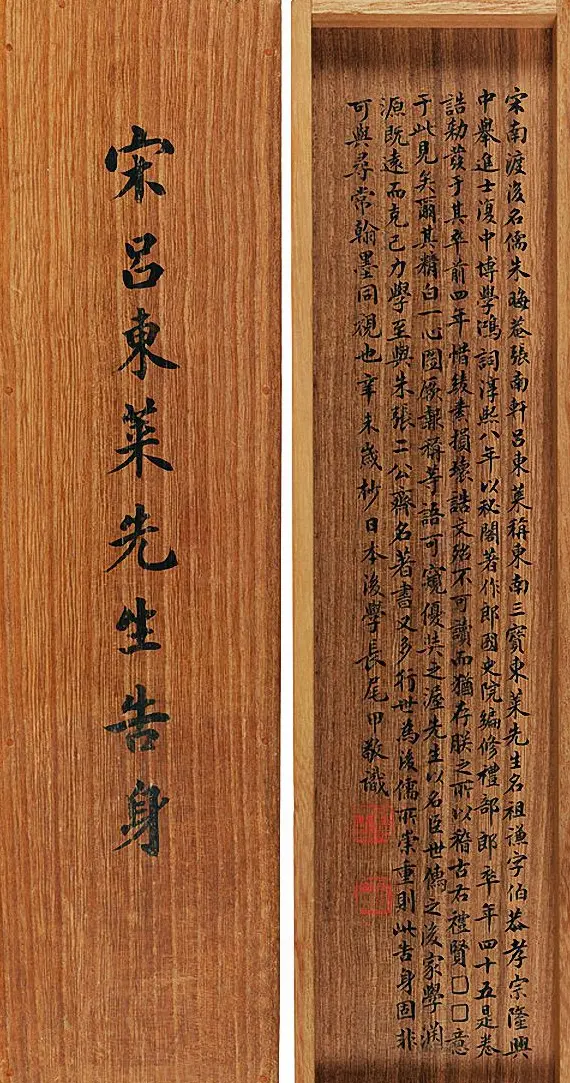 宋呂東萊先生告身
宋南渡後名儒朱晦菴張南軒呂東萊稱東南三寶東萊先生名祖謙字伯恭孝宗隆興
中舉進士復中博學鴻詞淳熙八年以秘閣著作郎國史院編修禮部郎卒年四十五是卷
誥勅發于其卒前四年惜綾素損壞誥文殆不可讀而猶存朕之所以稽古右禮賢□□意
于此見矣爾其精白一心圖厥報稱等語可窺優奬之渥先生以名臣世儒之後家學渊
源既遠而克己力學至與朱張二公齊名著書又多行世為後儒所崇重則此告身固非
可與尋常翰墨同視也辛未歲杪日本後學長尾甲敬識